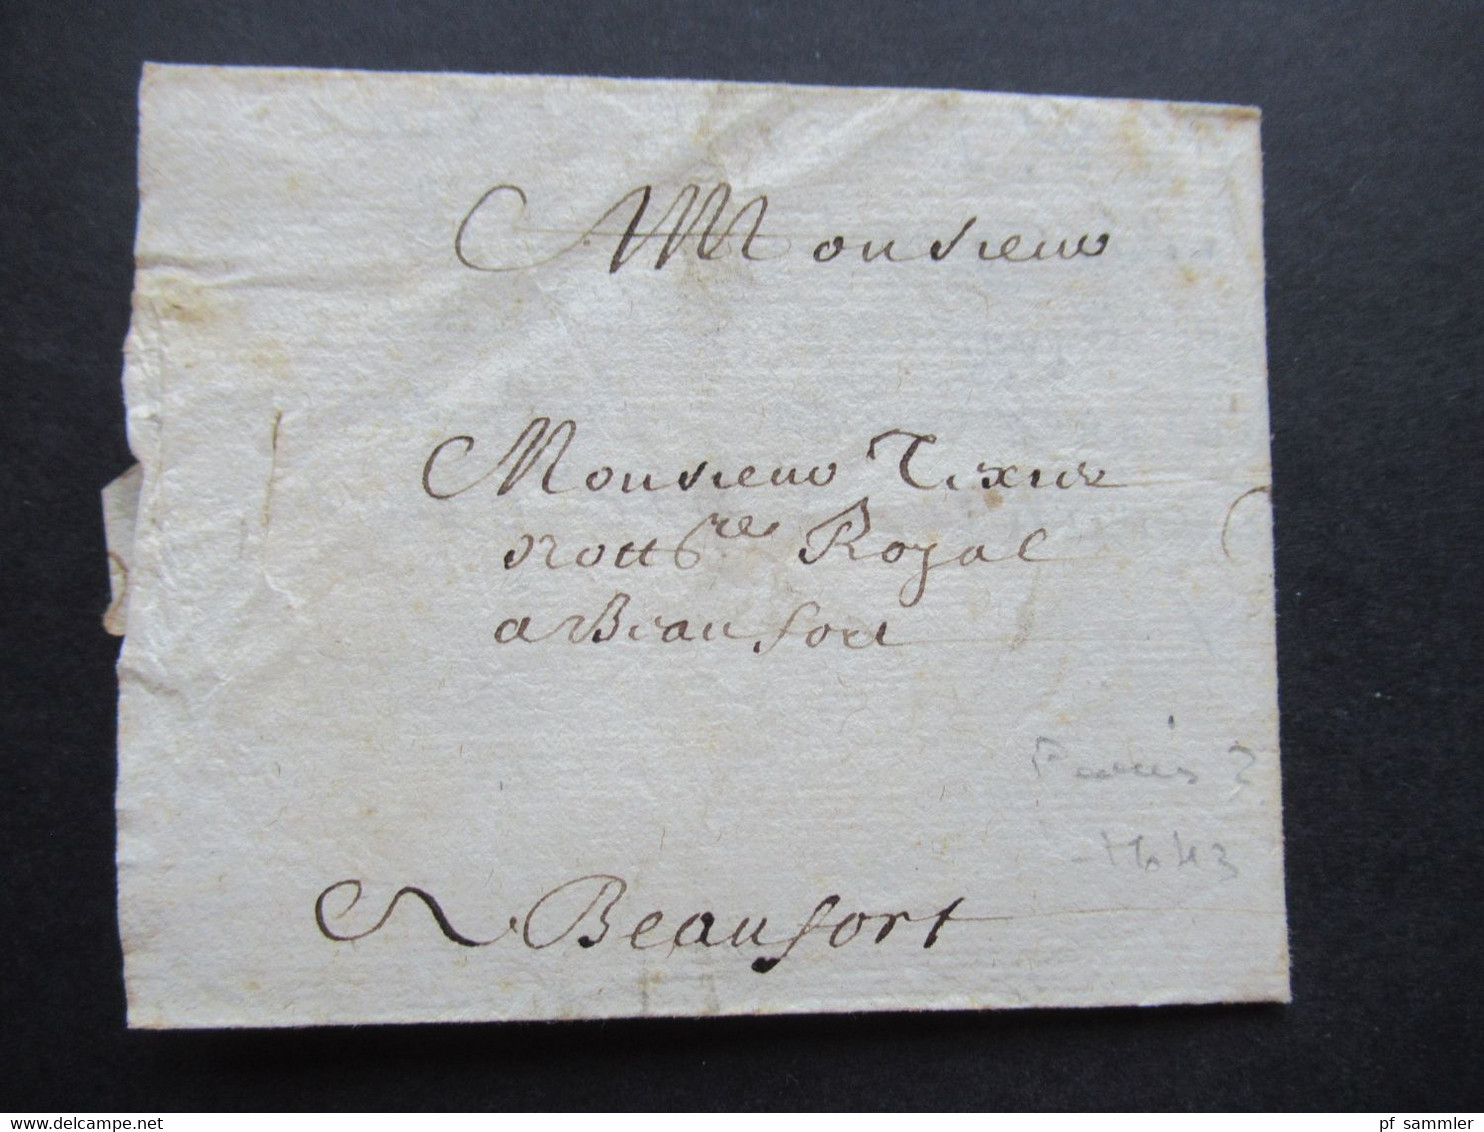 Monsieur
Monsieur Texier
Nott^re Royal
a Beaufort
Paris 2
A Beaufort
delcampe.net
pf_sammler